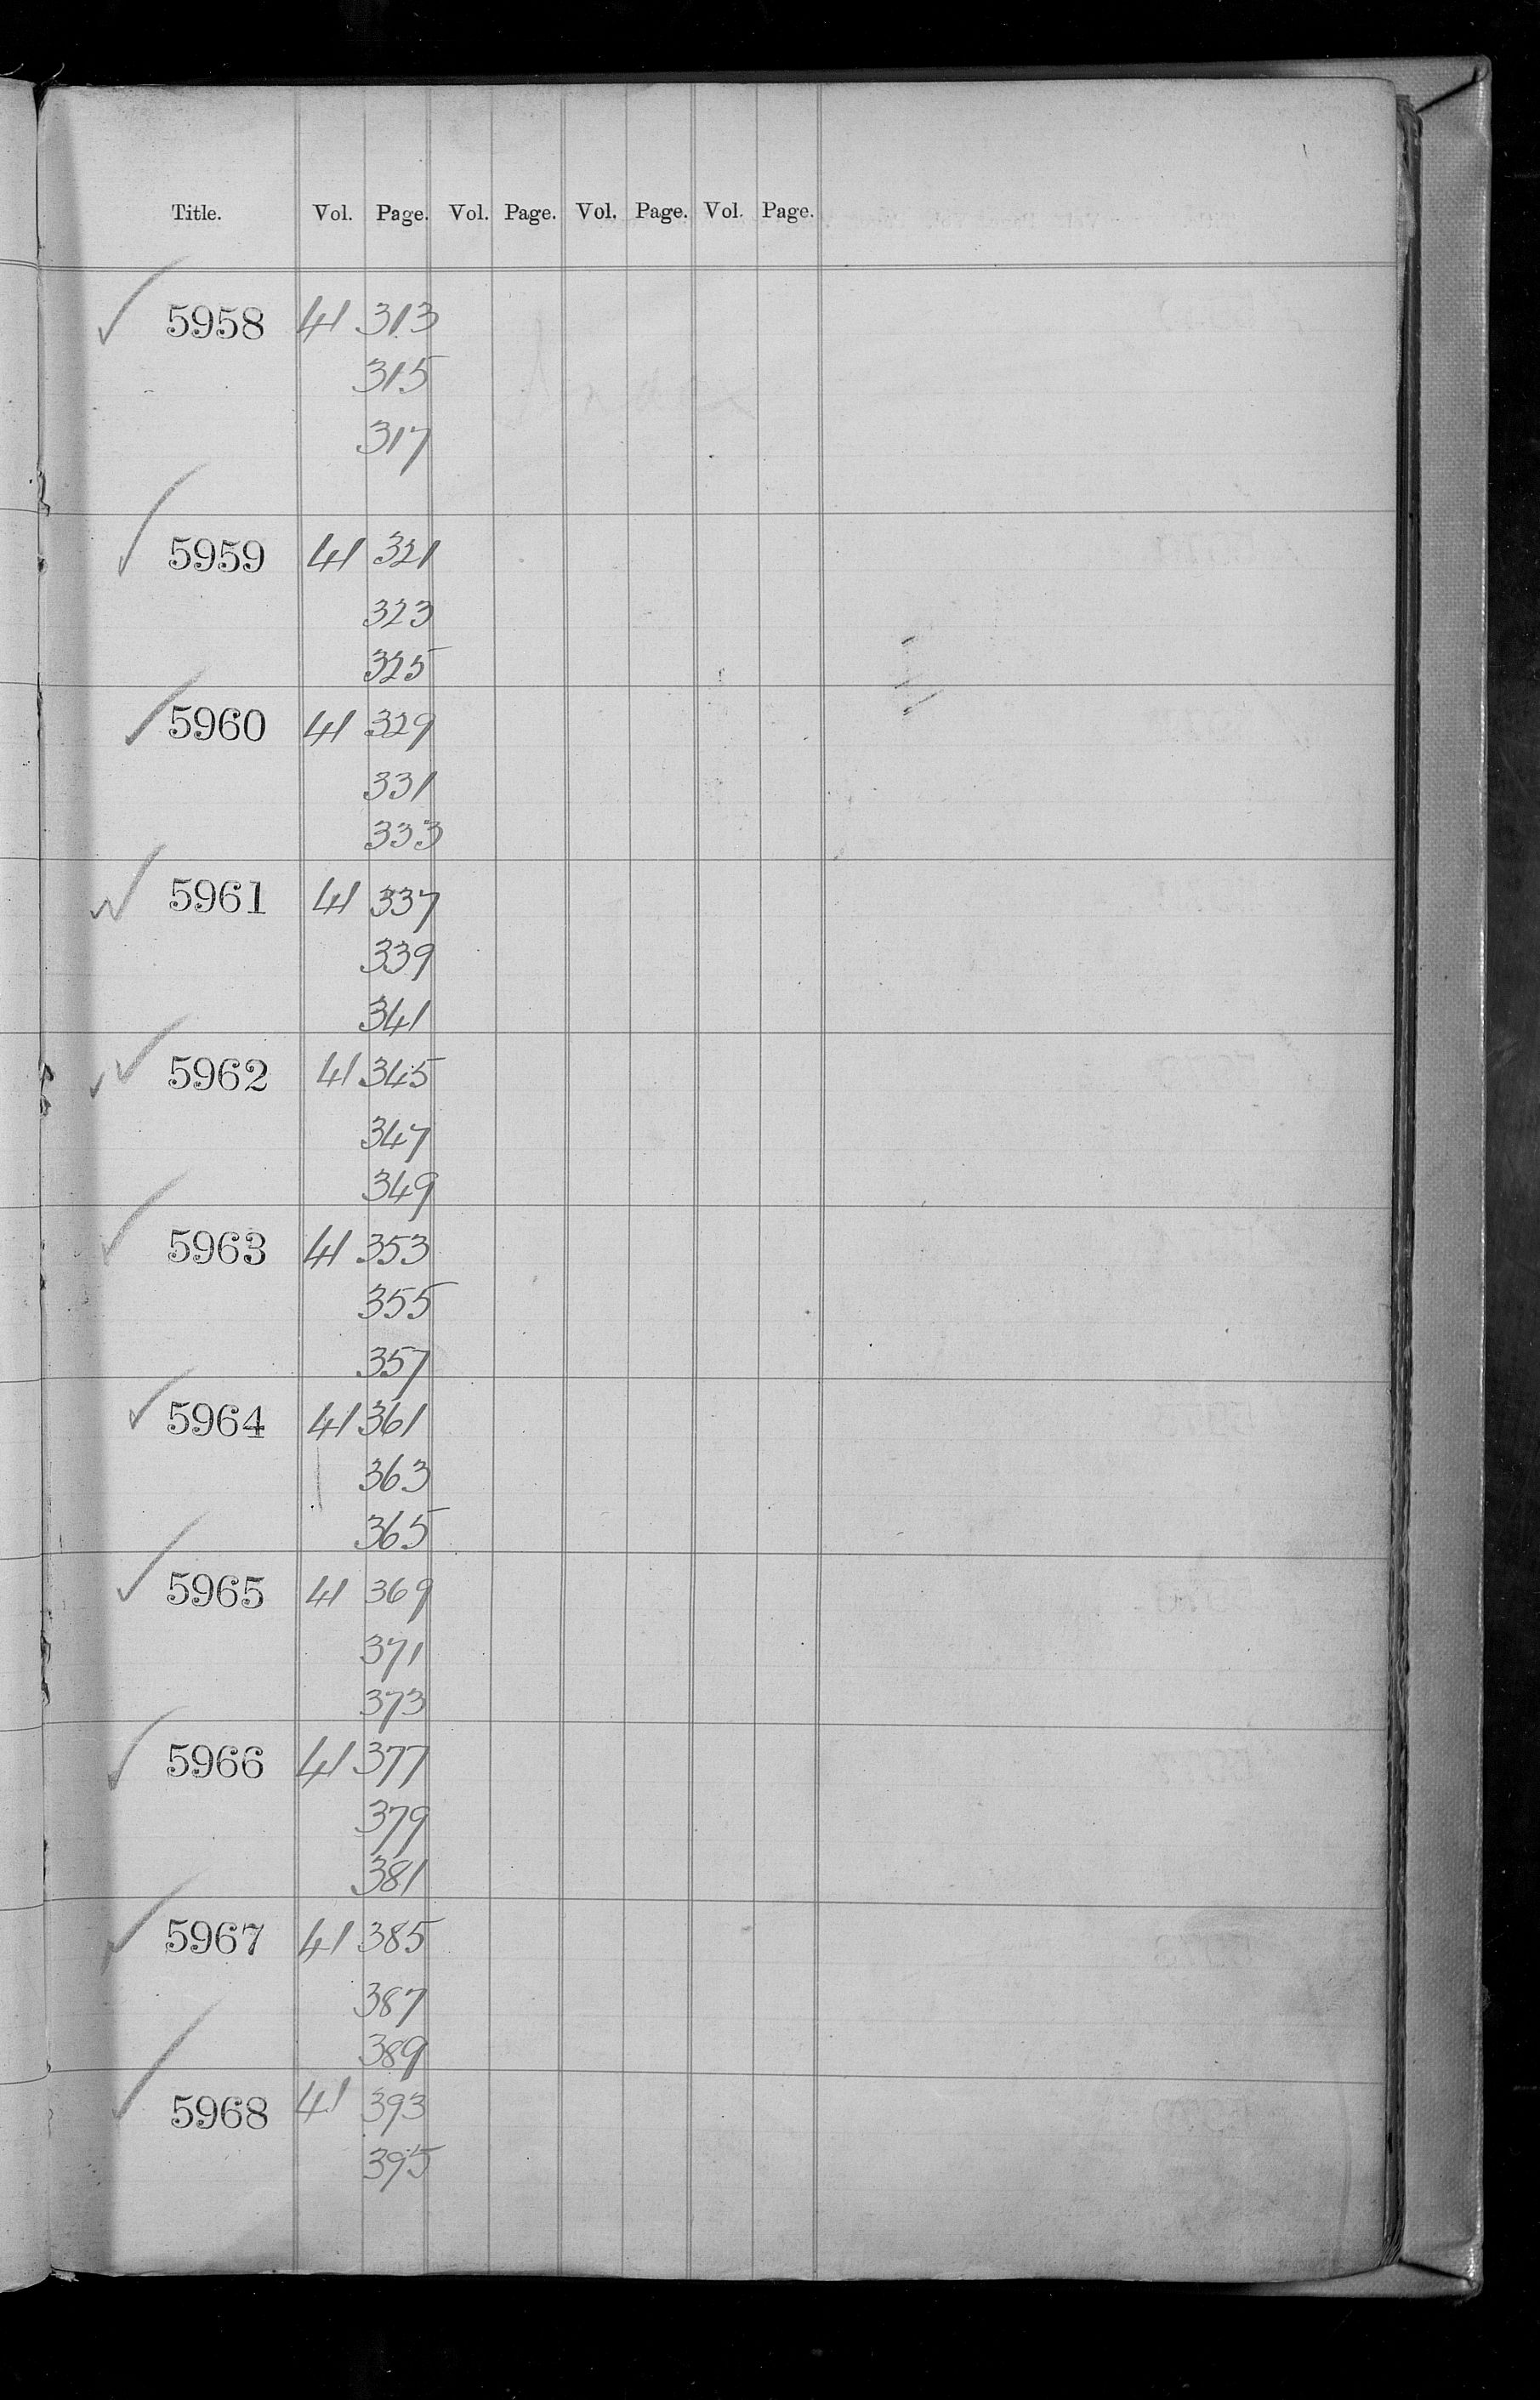 Title. Vol. Page. Vol. Page. Vol. Page. Vol. Page.
5958 41 313
315
317
5959 41 321
323
325
5960 41 329
331
333
5961 41 337
339
341
5962 41 345
347
349
5963 41 353
355
357
5964 41 361
363
365
5965 41 369
371
373
5966 41 377
379
381
5967 41 385
387
389
5968 41 393
395